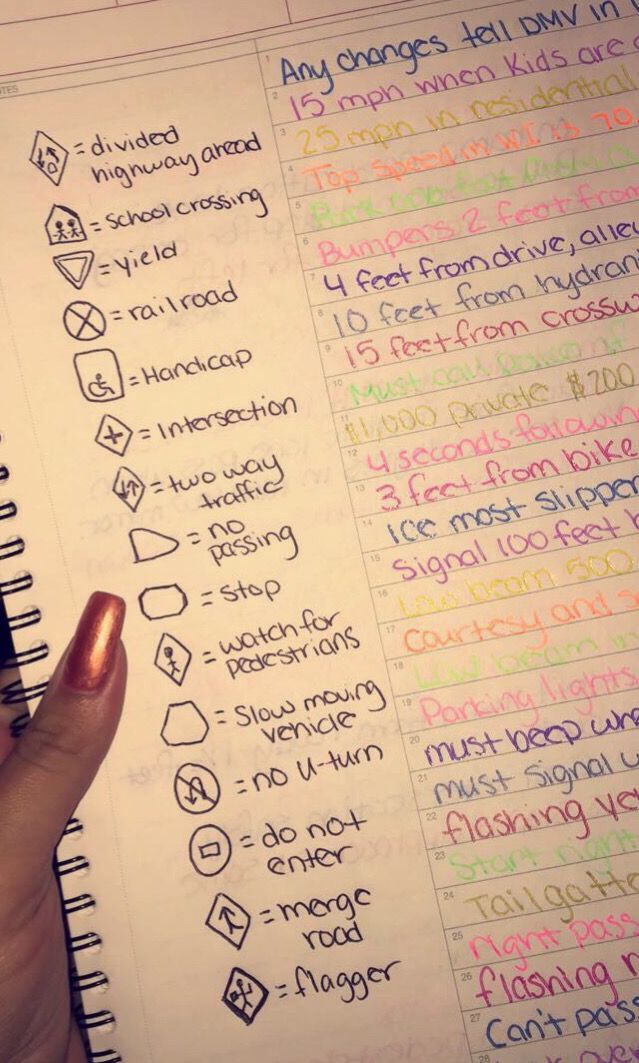 NOTES
= divided
highway ahead
= school crossing
= yield
= railroad
= Handicap
= Intersection
= two way
traffic
= no
passing
= stop
= watch for
pedestrians
= Slow moving
vehicle
= no U-turn
= do not
enter
= merge
road
= flagger
1 Any changes tell DMV in
2 15 mph when kids are
3 25 mph in residential
4 Top Speed in WI is 70
5 Park
6 Bumpers 2 feet from
7 4 feet from drive, alley
8 10 feet from hydrant
9 15 feet from crossw
10 Must call police if
11 $1,000 private $200
12 4 seconds followin
13 3 feet from bike
14 ice most slipper
15 Signal 100 feet
16 Low beam 500
17 Courtesy and
18 Low beam in
19 Parking lights
20 must beep whe
21 must signal
22 flashing ye
23 Start right
24 Tailgatte
25 right pass
26 flashing r
27 Can't pass
28